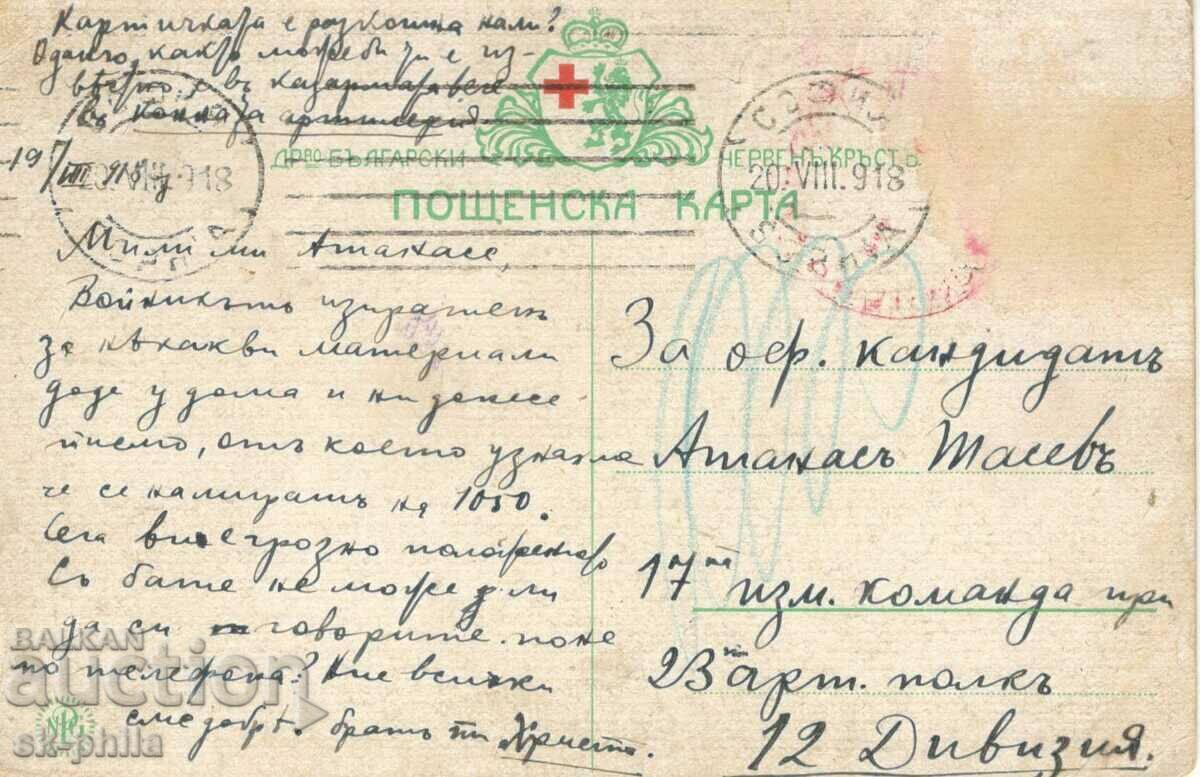 Картичката е разкошна нали?
Оданго, както може би ти е из-
вестно, е въ казармата вече
въ конната артилерия
Д-РВО БЪЛГАРСКИ ЧЕРВЕНЪ КРЪСТЪ
ПОЩЕНСКА КАРТА
19/VIII 918
20.VIII.918
СОФИЯ
20.VIII.918
Мили ми Атанасе,
Войникътъ изпратенъ
за нѣкакви материали
доде у дома и ни донесе
писмо, отъ което узнахме
че се намирашъ на 1050.
Сега ви е грозно положението
Съ бате не може ли
да си говорите поне
по телефона? Ние всички
сме добрѣ. братъ ти Христо.
За оф. кандидатъ
Атанасъ Тасевъ
17та изм. команда при
23тй арт. полкъ
12 Дивизия.
BALKAN
auction
sk-phila